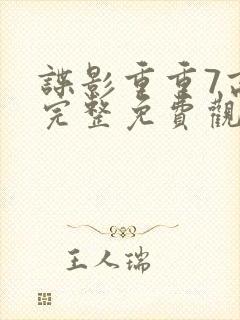 諜影重重7高
完整免費觀
王人瑞